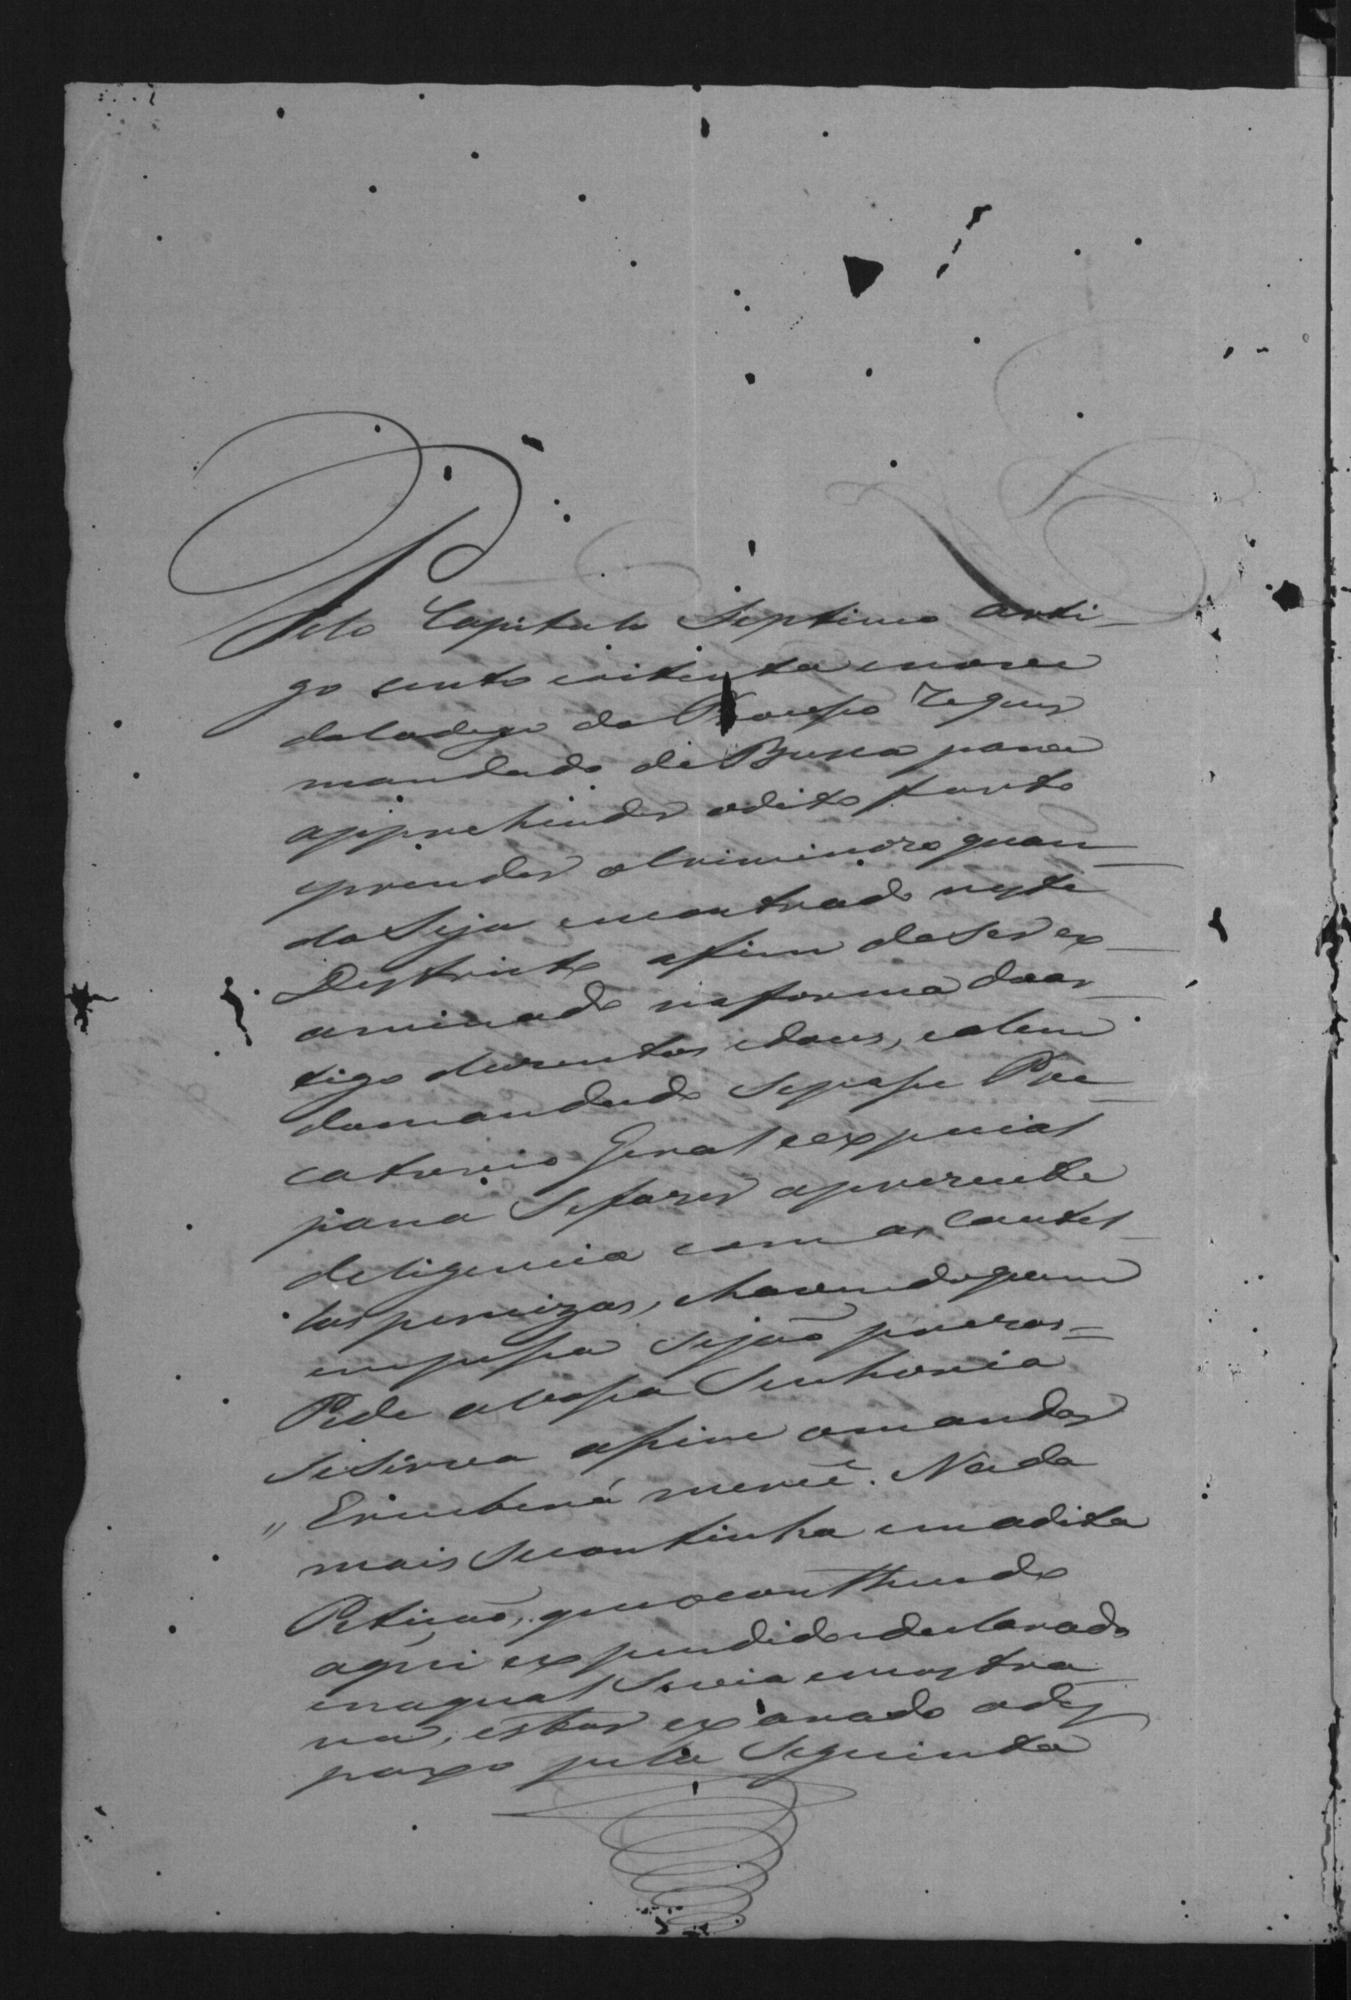 Pelo Capitulo Septimo Arti-
go cento eoitenta enove
doCodigo do Processo requer
mandado de Busca para
apprehender odito furto
eprender oCriminozo quan-
do Seja encontrado neste
Destricto afim deSer ex-
aminado naforma doar-
tigo duzentos edous, ealem
domandado Sepasse Pre-
catorio Geral eexpecial
para Sefazer aprezente
deligencia com as Cautel-
las percizas, ehavendoquem
empessa Sejaõ prezos =
Pede aVossa Senhoria
SeSirva assim omandar
" Ereceberá mercê. Nada
mais Secontinha emadita
Petiçaõ, queocontheudo
aqui expendido edeclarado
enaqual Sevia emostra-
va, estar exarado odes-
paxo pela Seguinte